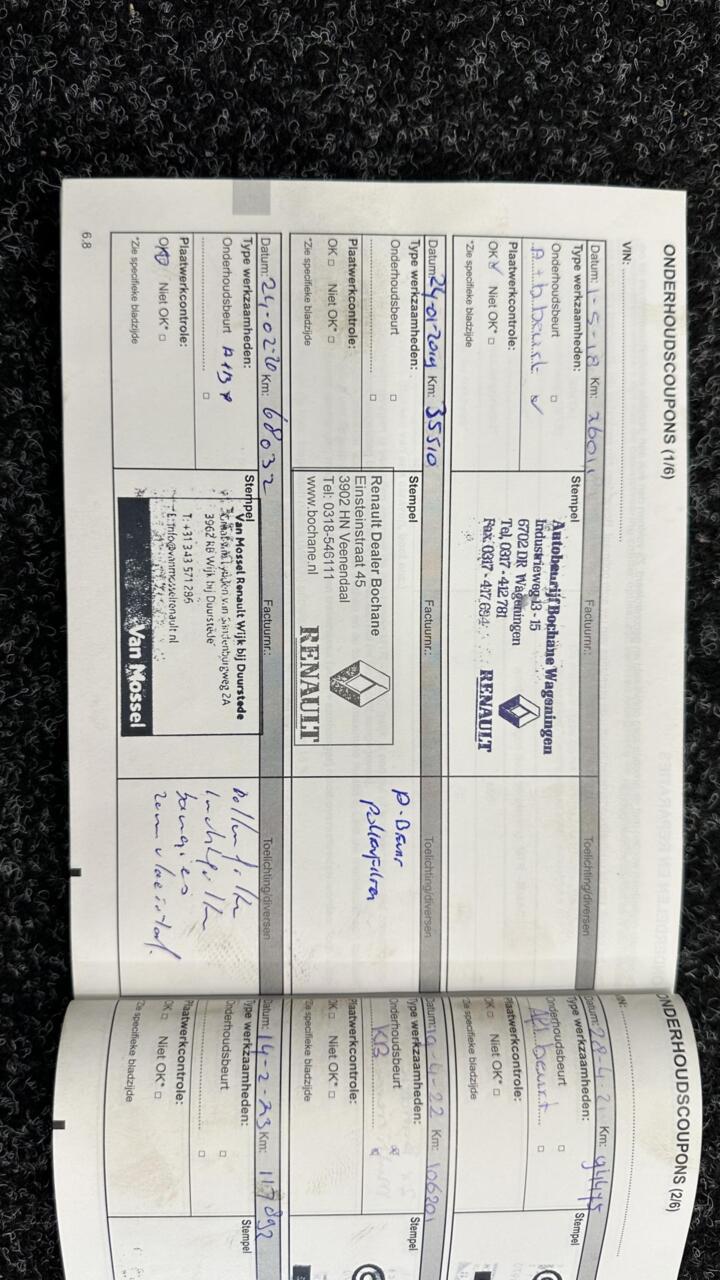 ONDERHOUDSCOUPONS (1/6)
VIN:
Datum: 1-5-18 Km: 26011
Type werkzaamheden:
Onderhoudsbeurt
A + b beurt
Plaatwerkcontrole:
OK Niet OK*
*Zie specifieke bladzijde
Stempel
Factuurnr.:
Autobedrijf Bochane Wageningen
Industrieweg 13 - 15
6702 DR Wageningen
Tel. 0317 - 412781
Fax. 0317 - 417694
RENAULT
Toelichting/diversen
Datum: 24-01-2019 Km: 35510
Type werkzaamheden:
Onderhoudsbeurt
Plaatwerkcontrole:
OK Niet OK*
*Zie specifieke bladzijde
Stempel
Factuurnr.:
Renault Dealer Bochane
Einsteinstraat 45
3902 HN Veenendaal
Tel: 0318-546111
www.bochane.nl
RENAULT
Toelichting/diversen
Pollenfilter
Datum: 24-02-20 Km: 68032
Type werkzaamheden:
Onderhoudsbeurt A+B
Plaatwerkcontrole:
OK Niet OK*
*Zie specifieke bladzijde
Stempel
Factuurnr.:
Van Mossel Renault Wijk bij Duurstede
3962 RB Wijk bij Duurstede
T: +31 343 571 295
E: info@vanmosselrenault.nl
Van Mossel
Toelichting/diversen
Pollenfilter
Luchtfilter
bougies
remvloeistof.
6.8
ONDERHOUDSCOUPONS (2/6)
Km: 94475
Type werkzaamheden:
Onderhoudsbeurt
beurt
Plaatwerkcontrole:
OK Niet OK*
Zie specifieke bladzijde
Stempel
Km: 106201
Type werkzaamheden:
Onderhoudsbeurt
KB
Plaatwerkcontrole:
OK Niet OK*
Zie specifieke bladzijde
Stempel
Datum: 14-2-23 Km: 117892
Type werkzaamheden:
Onderhoudsbeurt
Plaatwerkcontrole:
OK Niet OK*
Zie specifieke bladzijde
Stempel